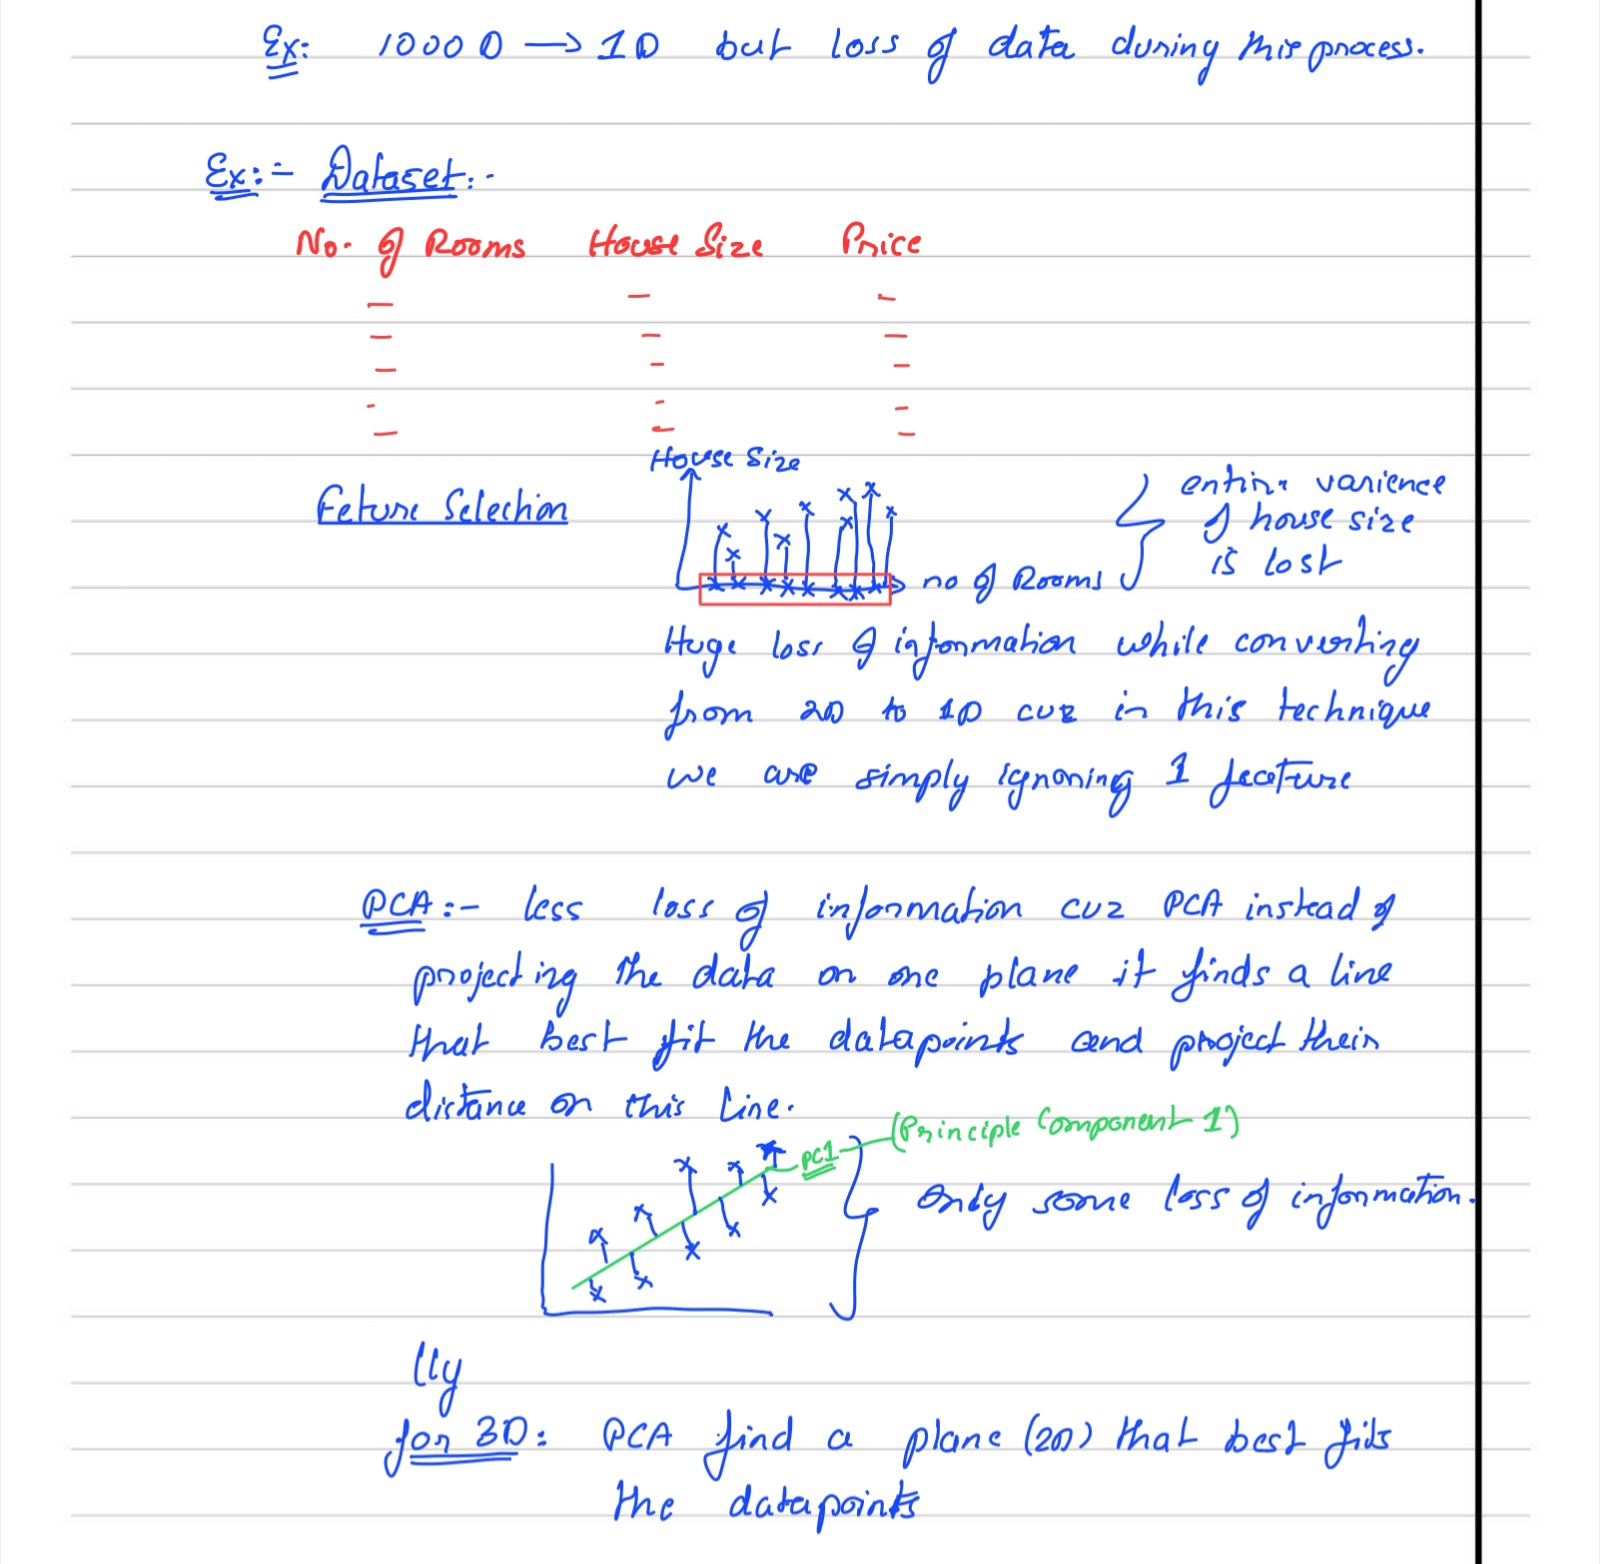 Ex: 1000 D → 1D but loss of data during this process.
Ex:- Dataset:-
No. of Rooms House Size Price
House Size
Feture Selection
entire varience
of house size
is lost
no of Rooms
Huge loss of information while converting
from 2D to 1D cuz in this technique
we are simply ignoring 1 feature
PCA:- less loss of information cuz PCA instead of
projecting the data on one plane it finds a line
that best fit the datapoints and project their
distance on this line.
(Principle Component 1)
PC1
Only some loss of information.
lly
for 3D: PCA find a plane (2D) that best fits
the datapoints